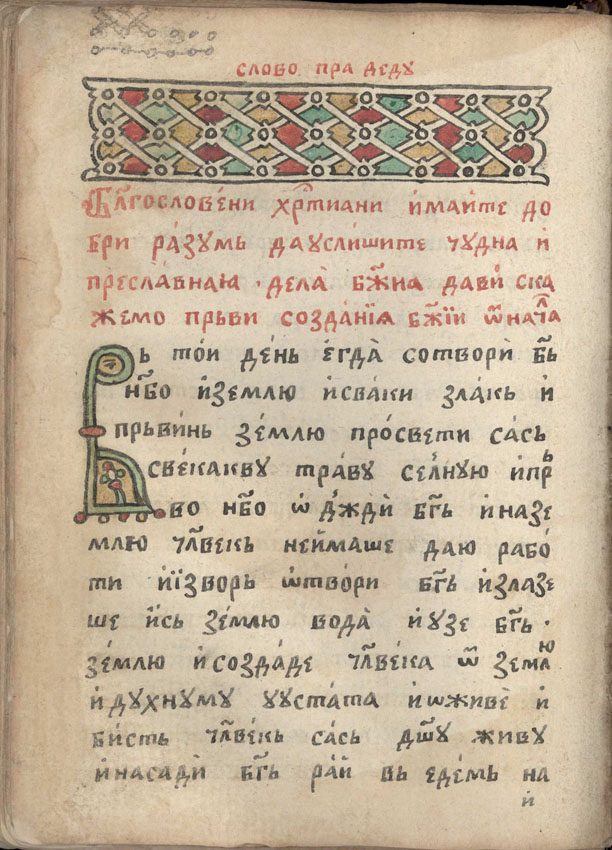 слово пра деду
Бл҃гословени хр҃тиани имаите до
бри разумь да услишите чудна и
преславная · дела бж҃ия да ви ска
жемо прьви создания бж҃ии ѿ начала
Вь тои день егда сотвори бг҃ь
нб҃о и землю и сваки злакь и
прьвинь землю просвети сась
свекакву траву селную и прь
во нб҃о ѡдъжди бг҃ь и на зе
млю чл҃векь неимаше да ю рабо
ти и їзворь ѡтвори бг҃ь излазе
ше ись землю вода и узе бг҃ь ·
землю и создаде чл҃века ѿ землю
и духну му у устата и ѡживе и
бисть чл҃векь сась дш҃у живу
и насади бг҃ь раи вь едемь на
и